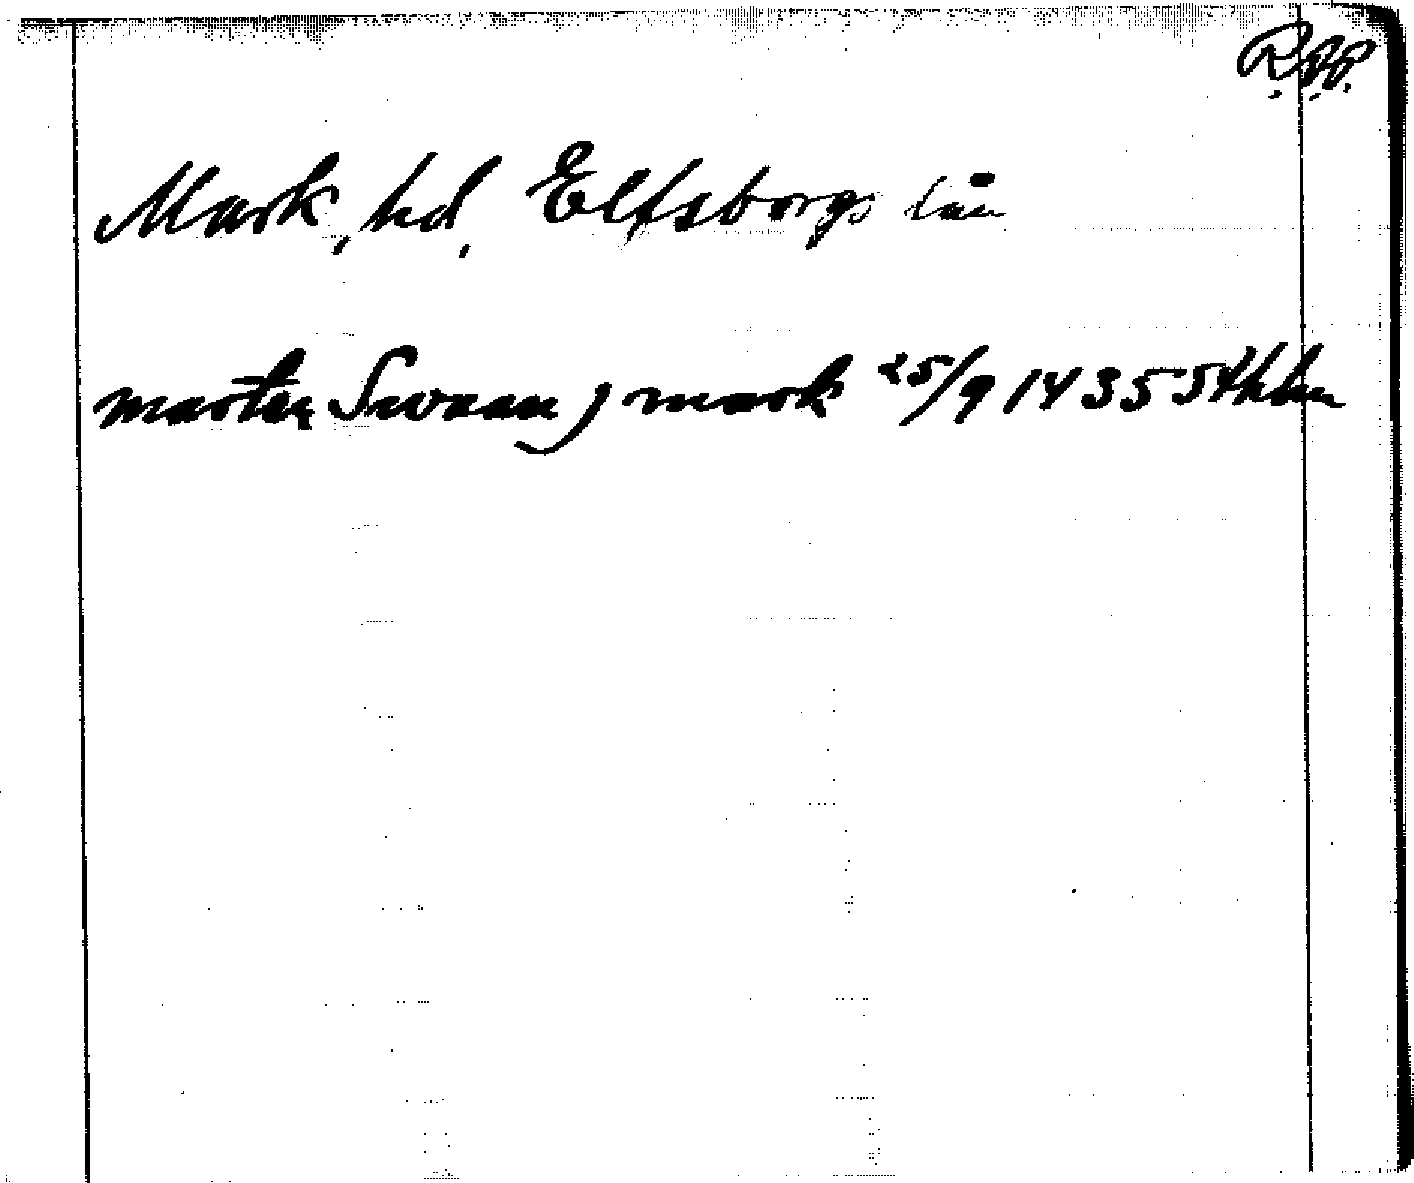 R.A.P.
Mark, hd, Elfsborgs län
marten Swaan j mark 25/9 1435 Sthlm